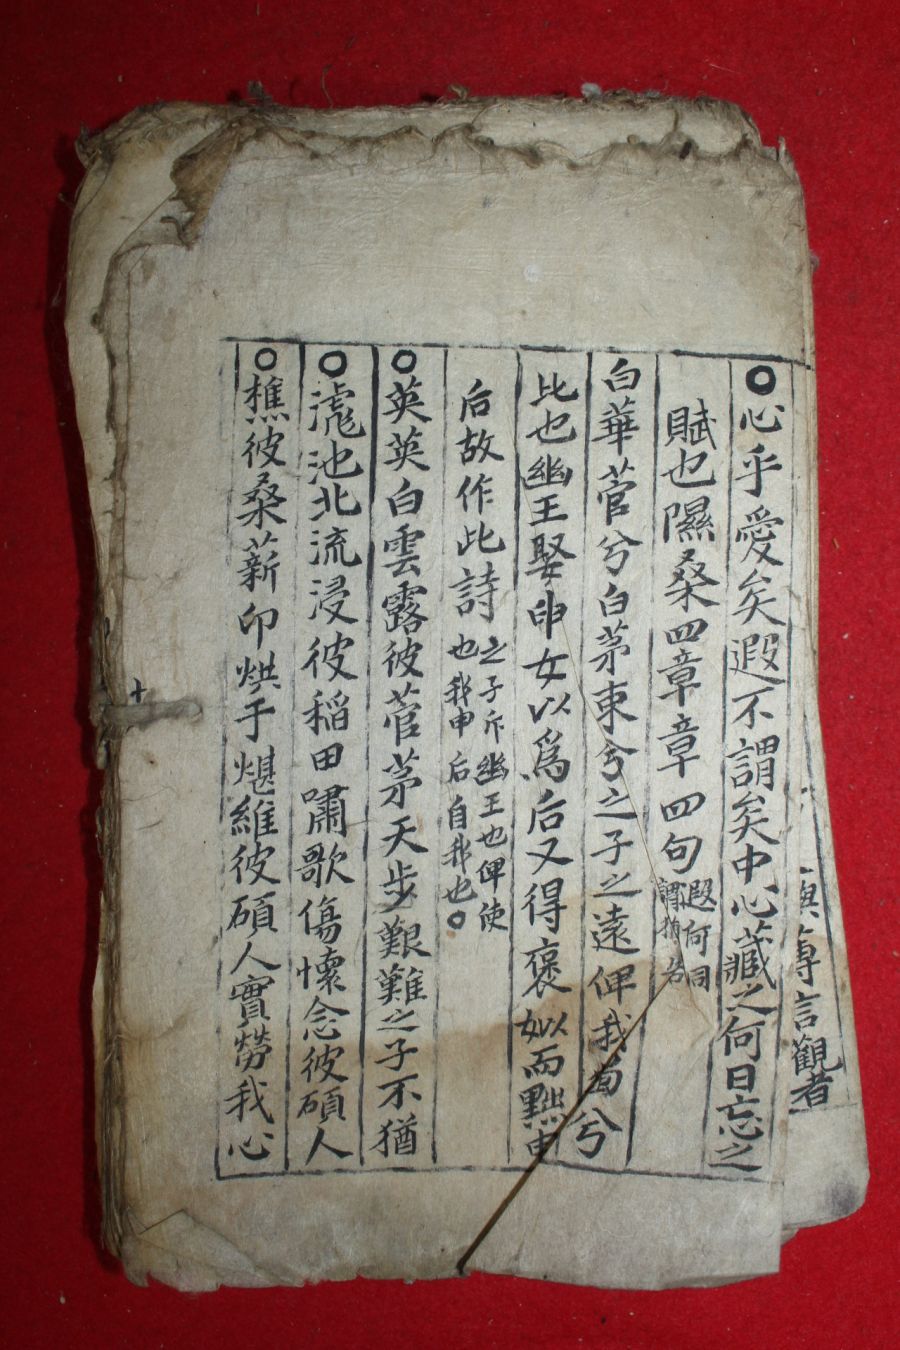 薄言觀者
○心乎愛矣遐不謂矣中心藏之何日忘之
賦也隰桑四章章四句
遐何同
謂猶告
白華菅兮白茅束兮之子之遠俾我兮
比也幽王娶申女以爲后又得褒姒而黜申
后故作此詩
之子斥幽王也俾使
也我申后自我也○
○英英白雲露彼菅茅天步艱難之子不猶
○滮池北流浸彼稻田嘯歌傷懷念彼碩人
○樵彼桑薪卬烘于煁維彼碩人實勞我心